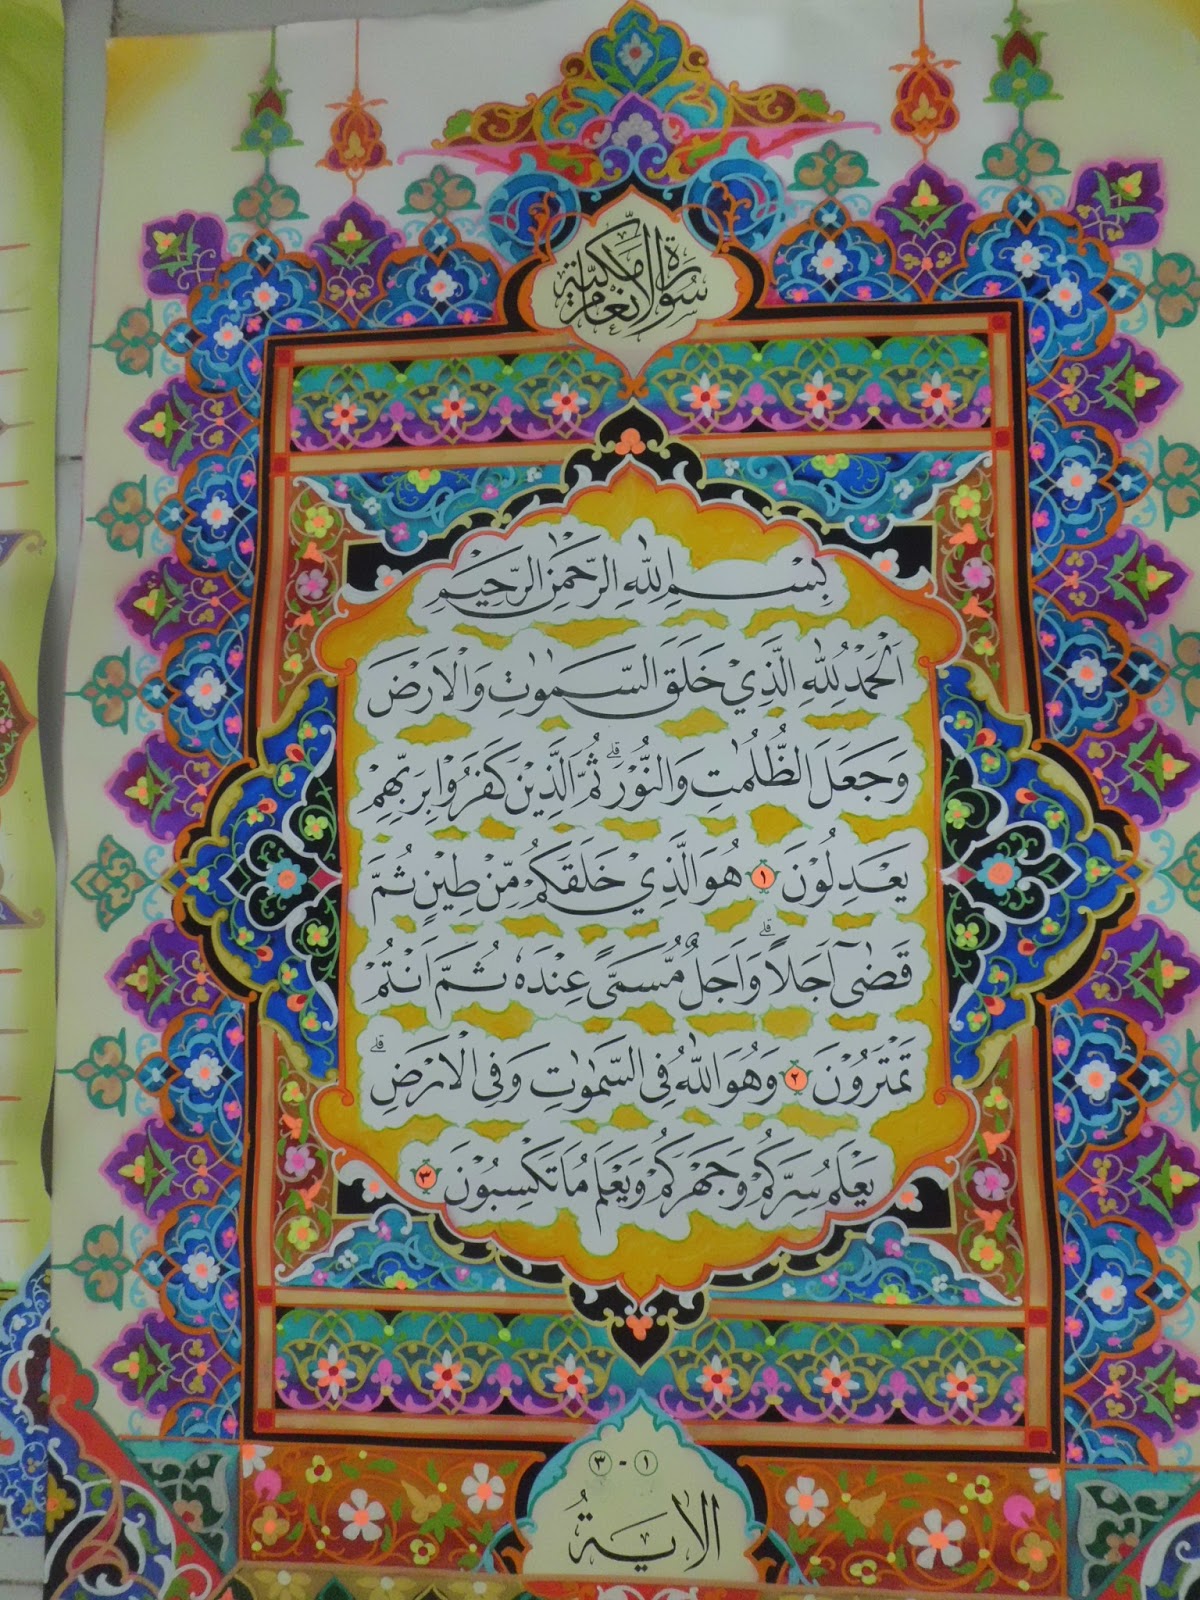 سورة الانعام مكية
بِسْمِ اللّٰهِ الرَّحْمٰنِ الرَّحِيْمِ
اَلْحَمْدُ لِلّٰهِ الَّذِيْ خَلَقَ السَّمٰوٰتِ وَالْاَرْضَ
وَجَعَلَ الظُّلُمٰتِ وَالنُّوْرَ ۗ ثُمَّ الَّذِيْنَ كَفَرُوْا بِرَبِّهِمْ
يَعْدِلُوْنَ ١ هُوَ الَّذِيْ خَلَقَكُمْ مِّنْ طِيْنٍ ثُمَّ
قَضٰٓى اَجَلًا ۗ وَاَجَلٌ مُّسَمًّى عِنْدَهٗ ثُمَّ اَنْتُمْ
تَمْتَرُوْنَ ٢ وَهُوَ اللّٰهُ فِى السَّمٰوٰتِ وَفِى الْاَرْضِ ۗ
يَعْلَمُ سِرَّكُمْ وَجَهْرَكُمْ وَيَعْلَمُ مَا تَكْسِبُوْنَ ٣
١ - ٣
الاٰيَةُ